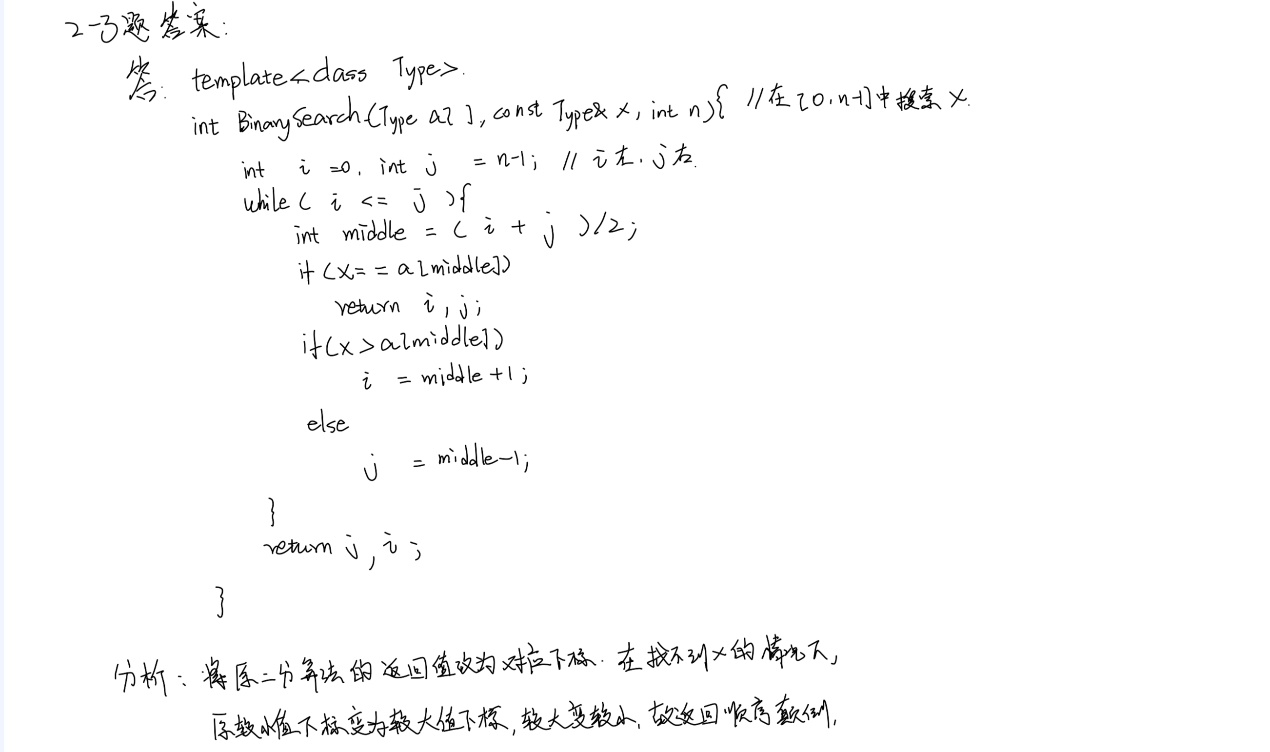 2-3题答案:
答: template<class Type>.
int BinarySearch(Type a[], const Type& x, int n){ //在[0,n-1]中搜索x.
int i =0, int j = n-1; // i左, j右.
while( i <= j ){
int middle = ( i + j )/2;
if (x== a[middle])
return i, j;
if(x>a[middle])
i = middle+1;
else
j = middle-1;
}
return j, i;
}
分析: 将原二分算法的返回值改为对应下标. 在找不到x的情况下,
原较小值下标变为较大值下标, 较大变较小, 故返回顺序颠倒.